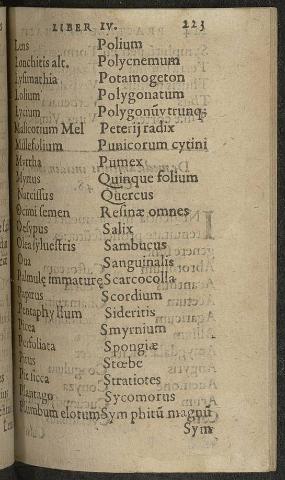 LIBER IV. 223
Lens Polium
Lonchitis alt. Polycnemum
Lysimathia Potamogeton
Lolium Polygonatum
Lycium Polygonũ vtrunq;
Masticorum Mel Peterij radix
Millefolium Punicorum cytini
Myrrha Pumex
Myrtus Quinque folium
Narcissus Quercus
Ocimi semen Resinæ omnes
Oesypus Salix
Olea syluestris Sambucus
Oua Sanguinalis
Palmulę immaturę Scarcocolla
Papirus Scordium
Pentaphyllum Sideritis
Picea Smyrnium
Perfoliata Spongiæ
Stœbe
Pix sicca Stratiotes
Plantago Sycomorus
Plumbum elotum Symphitũ magnũ
Sym